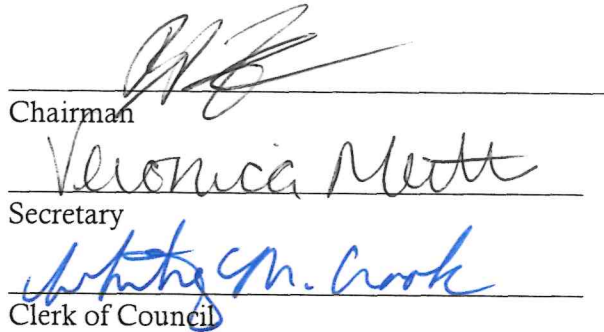 Chairman
Veronica
Secretary
M. Crook
Clerk of Council